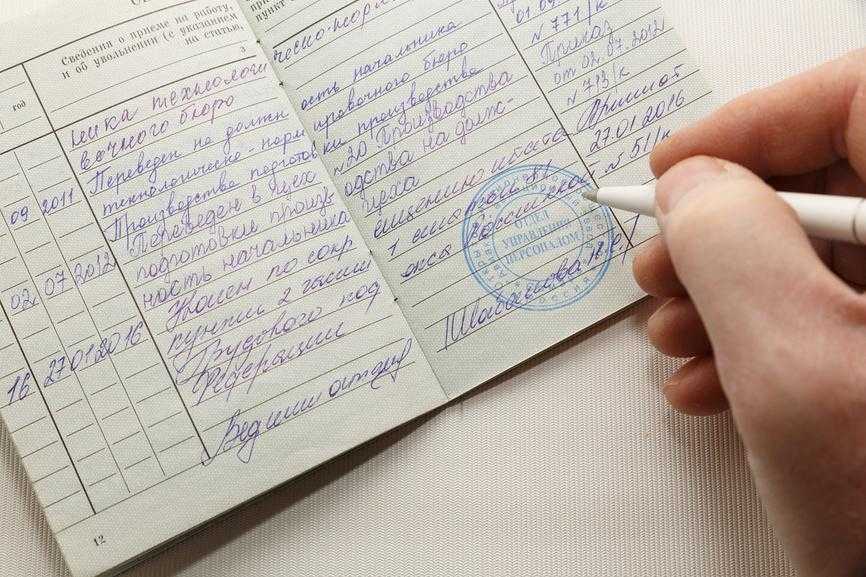 Сведения о приеме на работу,
и об увольнении (с указанием
на статью,
пункт
3
год
ника технологи
вочного бюро
09 2011 Переведен на должн ость начальника 01 09
технологическо-норм ировочного бюро N 771/к
Производства подготов ки производства Приказ
02 07 2012 Переведен в цех N20 Производства от 02.07.2012
подготовки произв одства на долж- N 713/к
ность начальника цеха
16 27 01 2016 Уволен по сокр ащению штата Приказ от
пункт 2 части 1 статьи 81 27.01.2016
Трудового код екса Российской N 51/к
Федерации
ОТДЕЛ
УПРАВЛЕНИЯ
ПЕРСОНАЛОМ
12